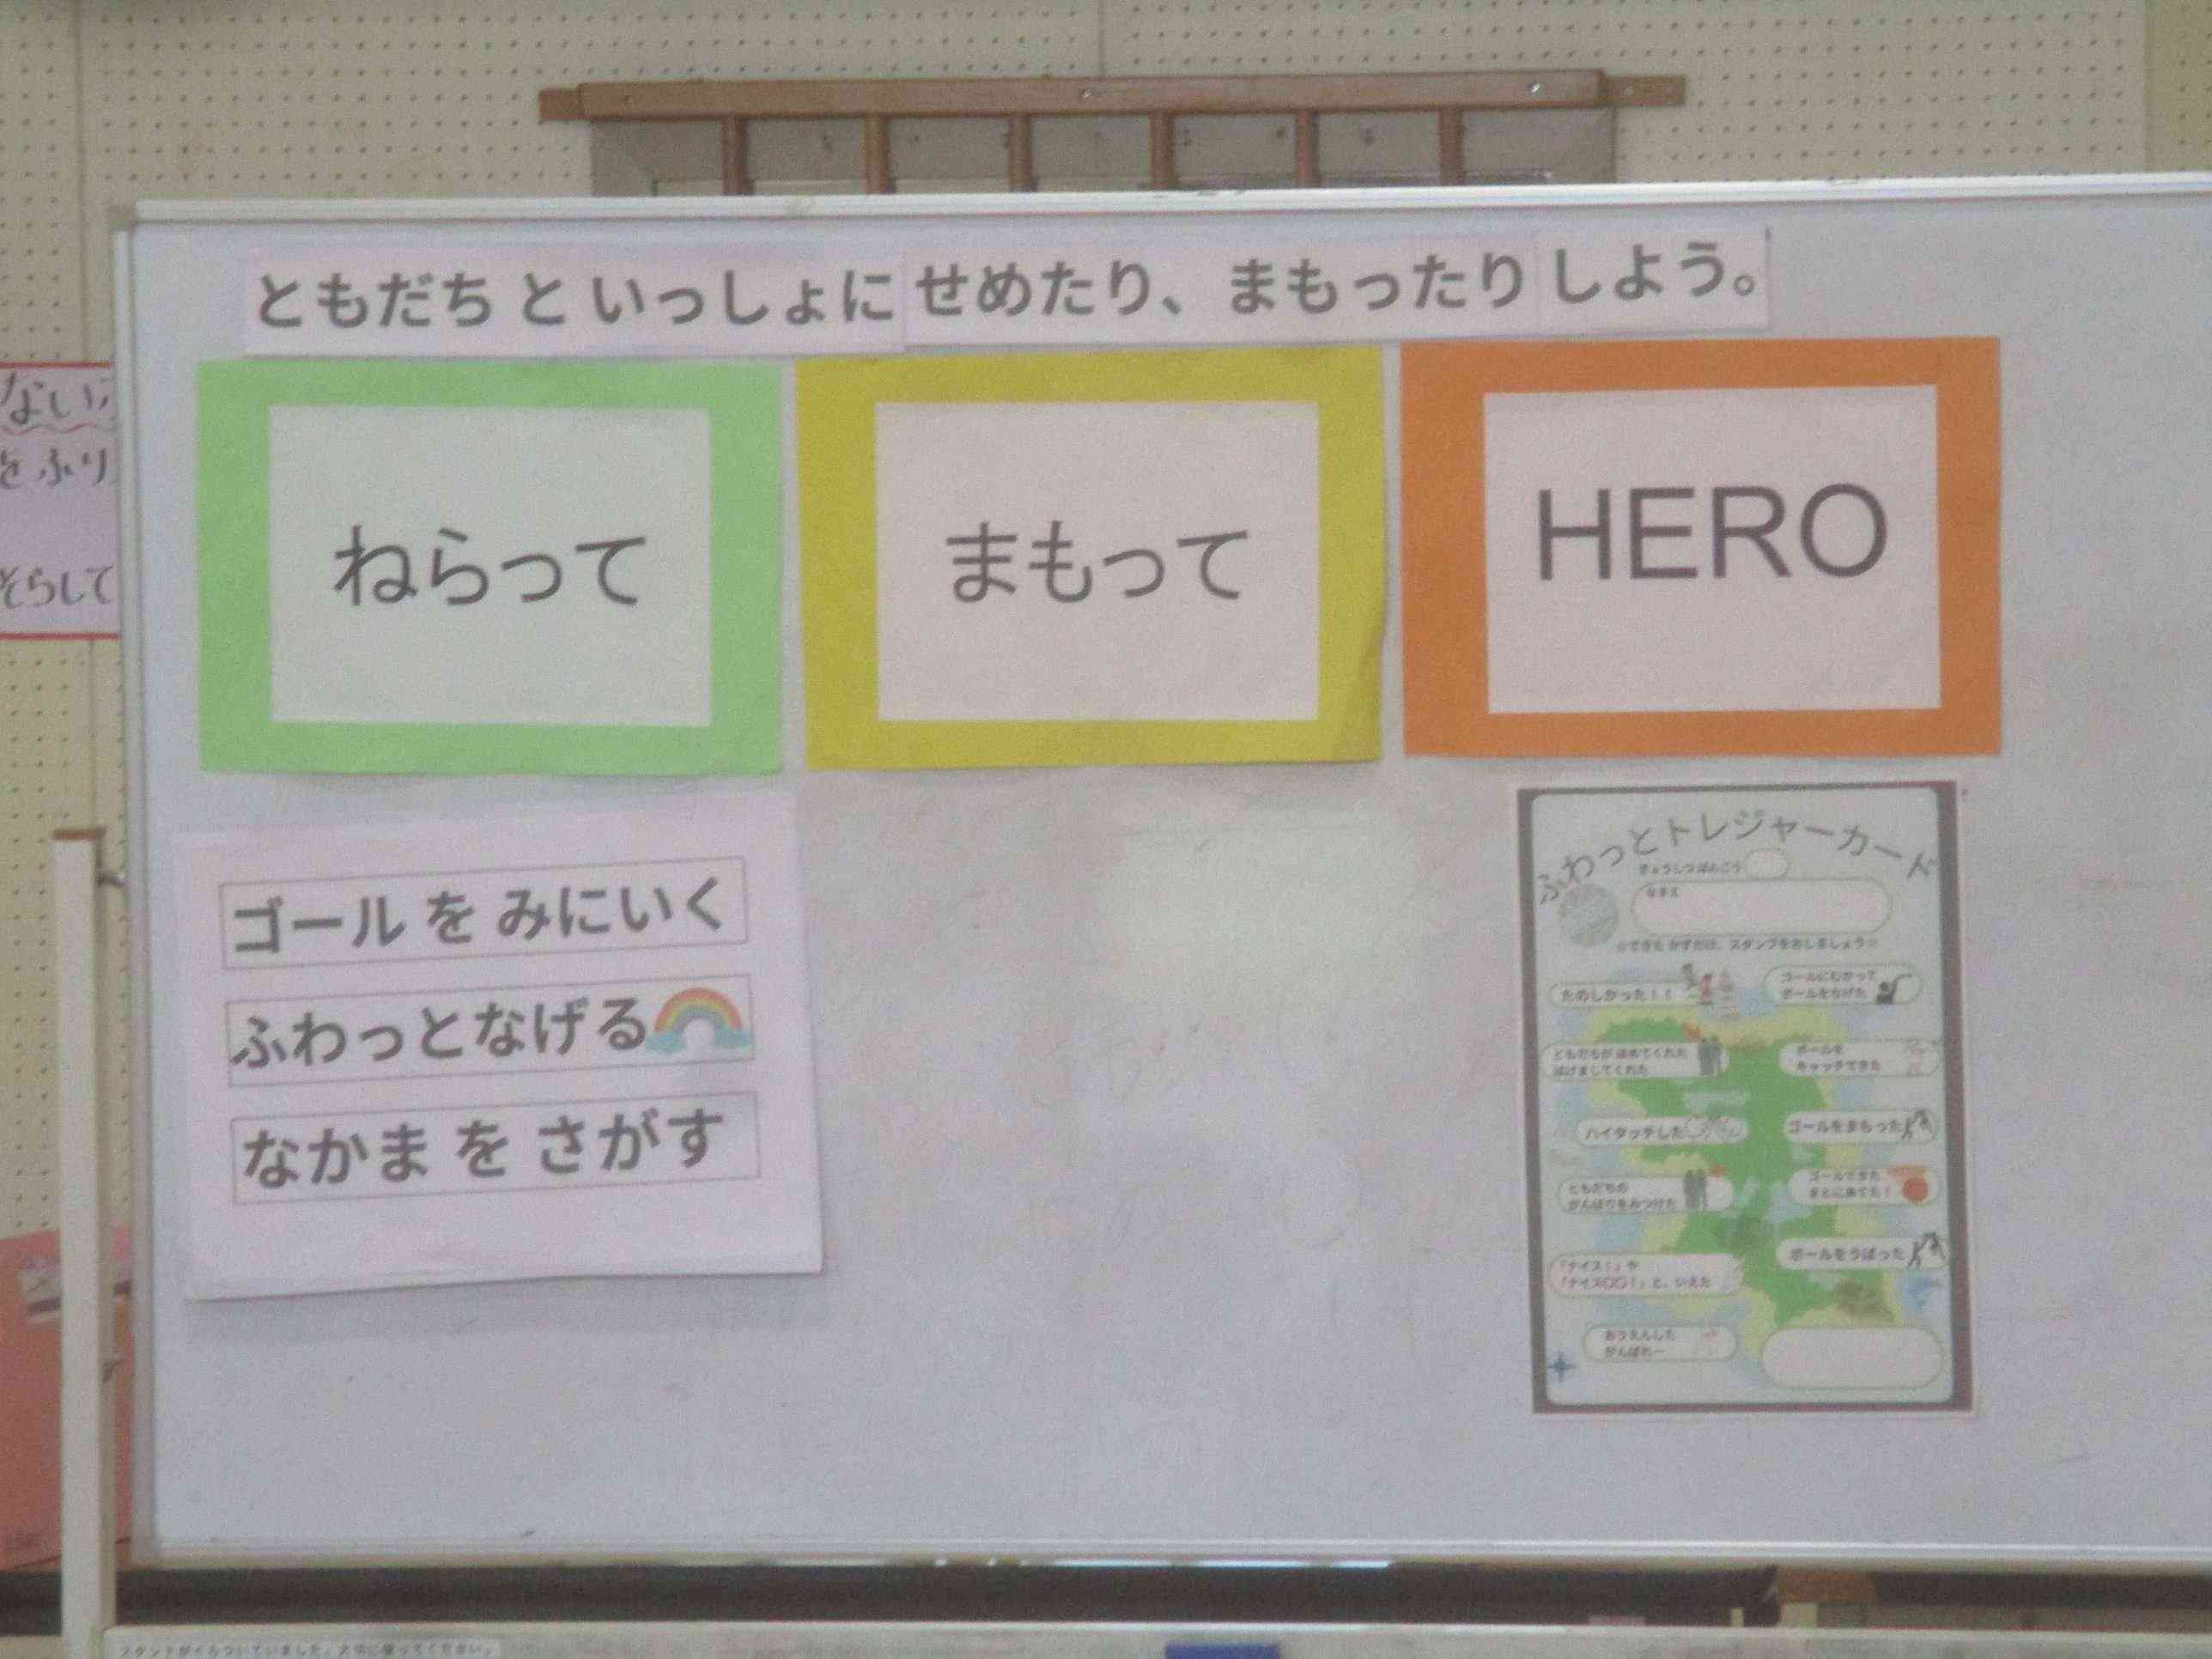 ともだち と いっしょに せめたり、まもったり しよう。
ねらって
まもって
HERO
ゴール を みにいく
ふわっとなげる
なかま を さがす
ふわっとトレジャーカード
きょうしつばんごう
なまえ
☆できた かずだけ、スタンプをおしましょう☆
たのしかった！！
ゴールにむかって
ボールをなげた
ともだちが ほめてくれた
はげましてくれた
ボールを
キャッチできた
ハイタッチした
ゴールをまもった
ともだちの
がんばりをみつけた
ゴールできた
まとにあてた！
「ナイス！」や
「ナイス〇〇！」と、いえた
ボールをうばった
おうえんした
がんばれー
ない
を ふり
そらして